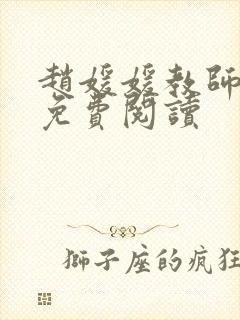 趙媛媛教師
免費閱讀
獅子座的疯狂